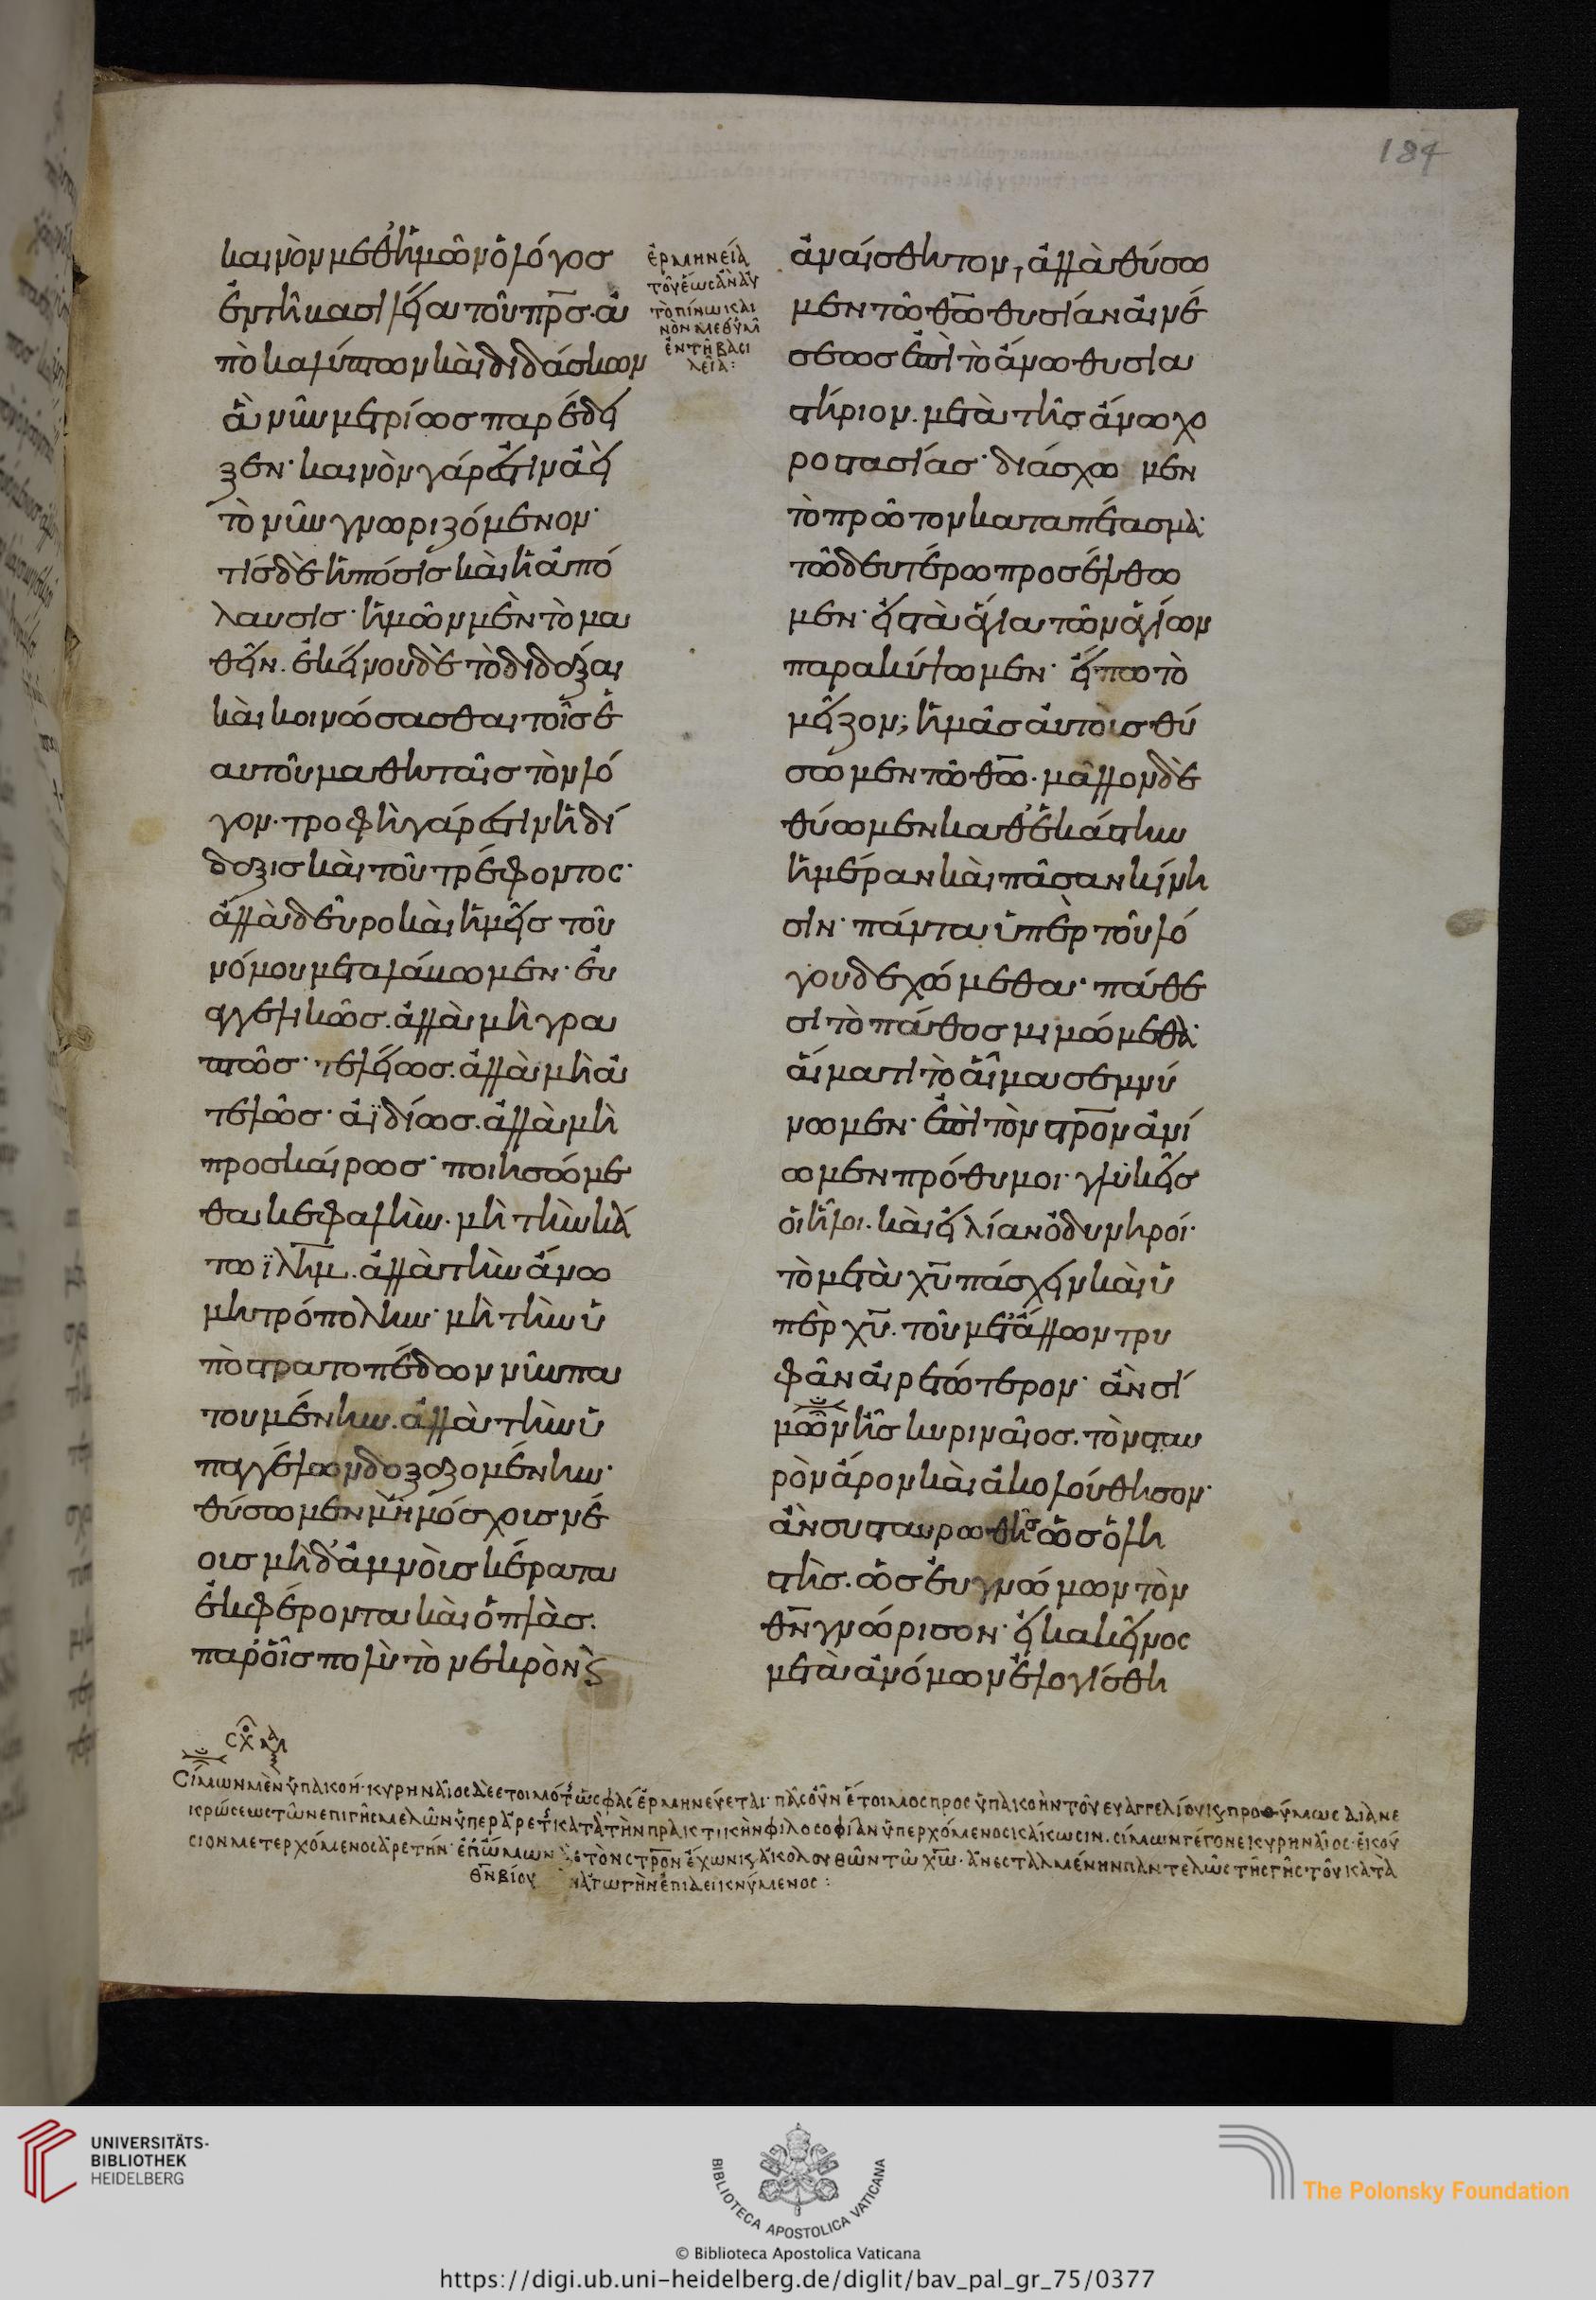 184
καινὸν μεθ' ἡμῶν ὁ λόγοσ
ἐν τῆ βασιλεία τοῦ πρ̅σ· ἀ
ποκαλύπτων καὶ διδάσκων
ἃ νῦν μετρίωσ παρέδει
ξεν· καινὸν γάρ ἐστιν ἀεὶ
τὸ νῦν γνωριζόμενον·
τίσ δὲ ἡ πόσισ καὶ ἡ ἀπό
λαυσισ· ἡμῶν μὲν τὸ μα
θεῖν. ἐκείνου δὲ τὸ διδάξαι
καὶ κοινώσασθαι τοῖσ ἑ
αυτοῦ μαθηταῖσ τὸν λό
γον· τροφὴ γάρ ἐστιν ἡ δί
δαξισ καὶ τοῦ τρέφοντοσ·
ἀλλὰ δεῦρο καὶ ἡμεῖσ τοῦ
νόμου μεταλάβωμεν· εὐ
αγγελικῶσ. ἀλλὰ μὴ γρα
πτῶσ· τελείωσ. ἀλλὰ μὴ ἀ
τελῶσ· ἀϊδίωσ. ἀλλὰ μὴ
προσκαίρωσ· ποιησώμε
θα κεφαλὴν. μὴ τὴν κά
τω ϊλη̅μ. ἀλλὰ τὴν ἄνω
μητρόπολιν· μὴ τὴν ὑ
πὸ στρατοπέδων νῦν πα
τουμένην. ἀλλὰ τὴν ὑ
π' αγγέλων δοξαζομένην·
θύσωμεν μὴ μόσχουσ νέ
ουσ μὴ δ' ἀμνοὺσ κέρατα
ἐκφέροντα καὶ ὁπλὰσ.
παρ' οἷσ πολὺ τὸ νεκρὸν ϗ
ἑρμηνεία
τοῦ ἕωσ ἂν αὐ
τὸ πίνω και
νὸν μεθ' ὑμῶ
ἐν τῆ βασι
λεία:
ἀναίσθητον, ἀλλὰ θύσω
μεν τῶ θ̅ω θυσίαν αἰνέ
σεωσ ἐπὶ τὸ ἄνω θυσια
στήριον. μετὰ τῆσ ἄνω χο
ροστασίασ· διάσχωμεν
τὸ πρῶτον καταπέτασμα·
τῶ δευτέρω προσέλθω
μεν· εἰσ τὰ ἅγια τῶν ἁγίων
παρακύψωμεν· εἴπω τὸ
μεῖζον; ἡμᾶσ αὐτοὺσ θύ
σωμεν τῶ θ̅ω· μᾶλλον δὲ
θύωμεν καθ' ἑκάστην
ἡμέραν καὶ πᾶσαν κίνη
σιν· πάντα ὑπὲρ τοῦ λό
γου δεχώμεθα· πάθε
σι τὸ πάθοσ μιμώμεθα·
αἵματι τὸ αἷμα σεμνύ
νωμεν· ἐπὶ τὸν στρ̅ον ἀνί
ωμεν πρόθυμοι· γλυκεῖσ
οἱ ἧλοι. καὶ εἰ λίαν ὀδυνηροί·
τὸ μετὰ χ̅υ πάσχειν καὶ ὑ
πὲρ χ̅υ. τοῦ μετ' ἄλλων τρυ
φᾶν αἱρετώτερον· ἂν σί
μων ῆσ κυριναῖοσ. τὸν σταυ
ρὸν ἆρον καὶ ἀκολούθησον·
ἂν συσταυρωθῆσ ὡσ ὁ λη
στὴσ. ὡσ εὐγνώμων τὸν
θ̅ν γνώρισον· εἰ κακεῖνοσ
μετὰ ἀνόμων ἐλογίσθη
σχόλ
Σίμων μὲν ὑπακοή· κυρηναῖοσ δὲ ἑτοιμότ ὥσ φασ ἑρμηνεύεται· πᾶσ οὖν ἕτοιμοσ προσ ὑπακοὴν τοῦ εὐαγγελίου ϗ προθύμωσ διὰ νε
κρώσεωσ τῶν επι γῆσ μελῶν ὑπερ ἀρετ κατὰ τὴν πρακτικὴν φιλοσοφίαν ὑπερχόμενοσ κάκωσιν. σίμων γέγονε κυρηναῖοσ· ἑκού
σιον μετερχόμενοσ ἀρετήν· ἐπ' ὤμων τὸν στρ̅ον ἔχων ϗ ἀκολουθῶν τῶ χ̅ω· ἀνεσταλμένην παντελῶσ τῆσ γῆσ τοῦ κατὰ
θ̅ν βίου ἀγωγὴν ἐπιδεικνύμενοσ:
UNIVERSITÄTS-
BIBLIOTHEK
HEIDELBERG
BIBLIOTECA APOSTOLICA VATICANA
The Polonsky Foundation
© Biblioteca Apostolica Vaticana
https://digi.ub.uni-heidelberg.de/diglit/bav_pal_gr_75/0377